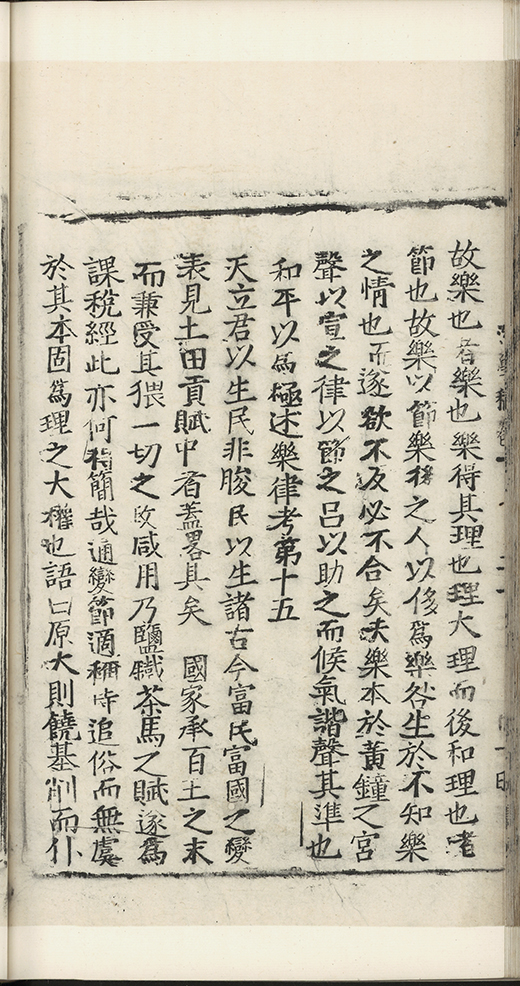 故樂也者樂也樂得其理也理大理而後和理也者
節也故樂以節樂後之人以侈爲樂咎生於不知樂
之情也而遂欲不及必不合矣夫樂本於黃鐘之宮
聲以宣之律以節之呂以助之而候氣諧聲其準也
和平以爲極述樂律考第十五
天立君以生民非朘民以生諸古今富民富國之變
表見土田貢賦中者蓋畧具矣 國家承百王之末
而兼受其猥一切之政咸用乃鹽鐵茶馬之賦遂爲
課稅經此亦何稱簡哉通變節適稱時追俗而無虞
於其本固爲理之大權也語曰原大則饒基削而仆